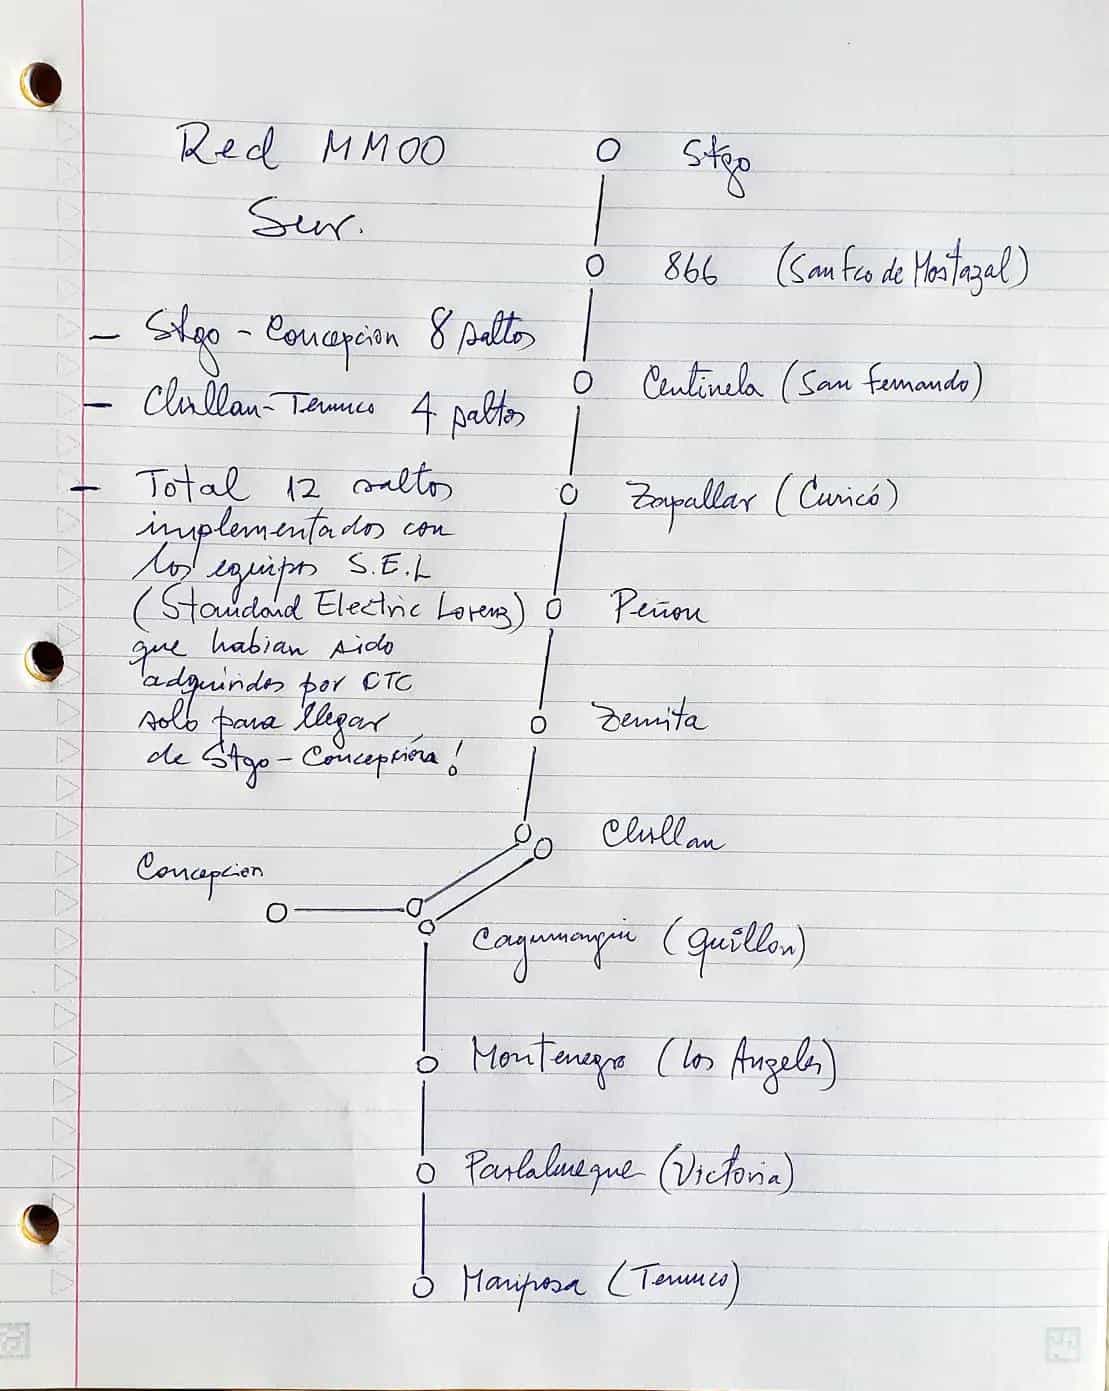 Red MMOO
Sur.
- Stgo - Concepcion 8 saltos
- Chillan - Temuco 4 saltos
- Total 12 saltos
implementados con
los equipos S.E.L
(Standard Electric Lorenz)
que habian sido
adquiridos por CTC
solo para llegar
de Stgo - Concepción!
Stgo
866 (San Fco de Mostazal)
Centinela (San Fernando)
Zapallar (Curicó)
Peñon
Zemita
Chillan
Concepcion
Cayumanqui (Quillon)
Montenegro (Los Angeles)
(Victoria)
Mariposa (Temuco)